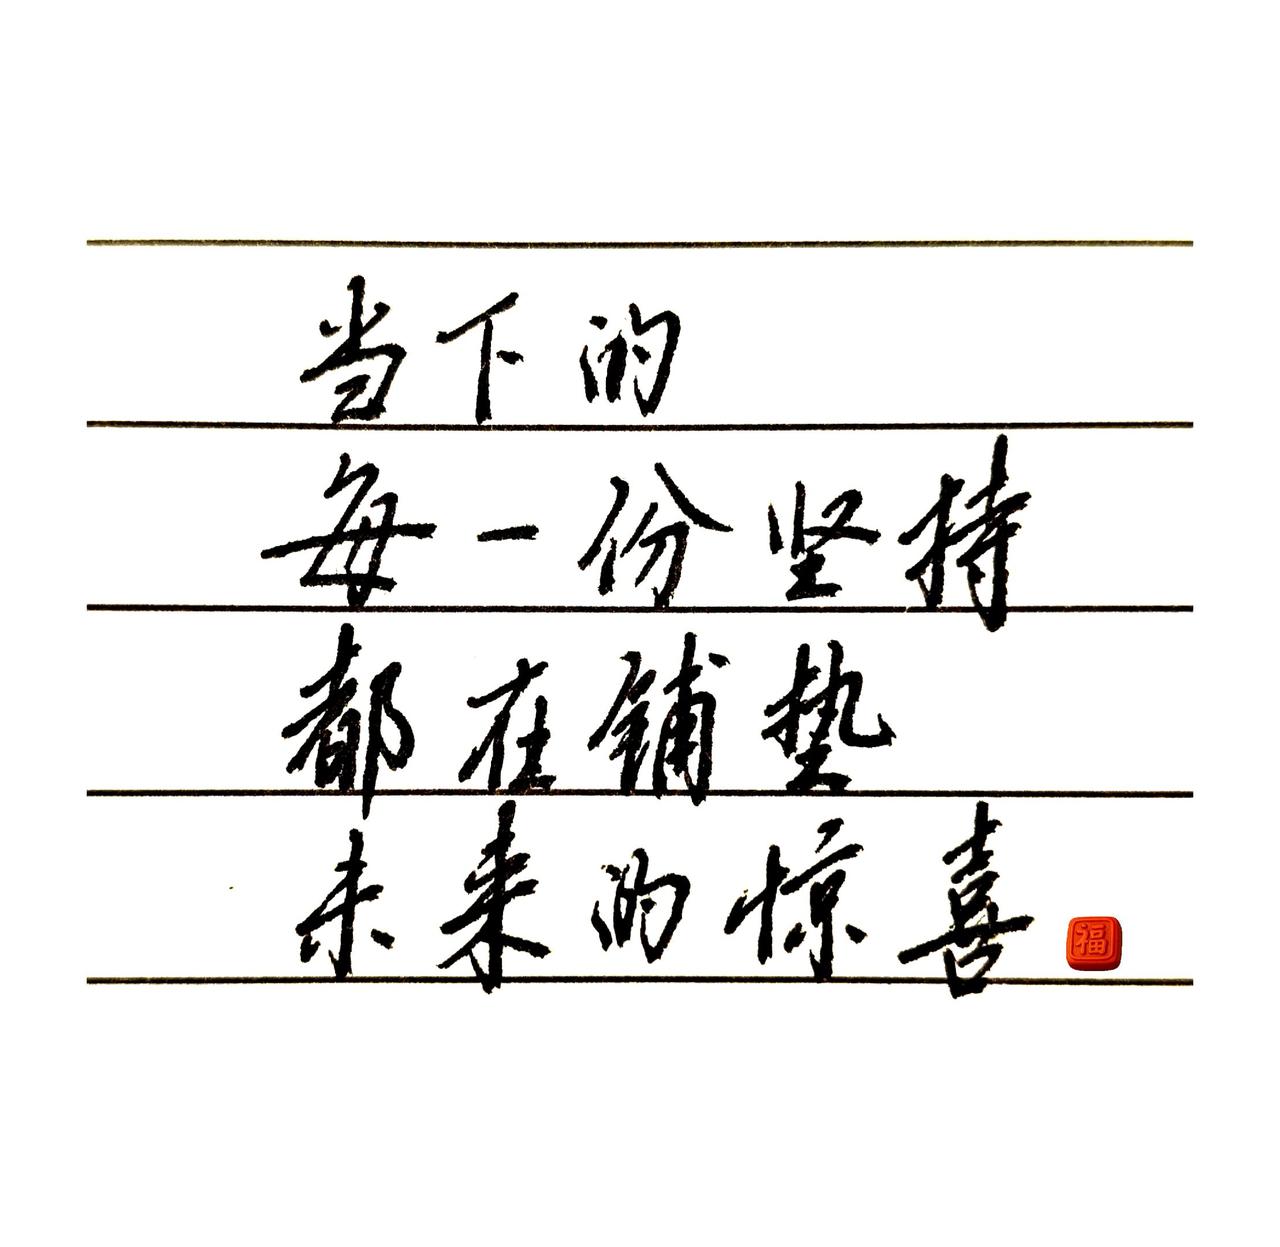 当下的
每一份坚持
都在铺垫
未来的惊喜
福